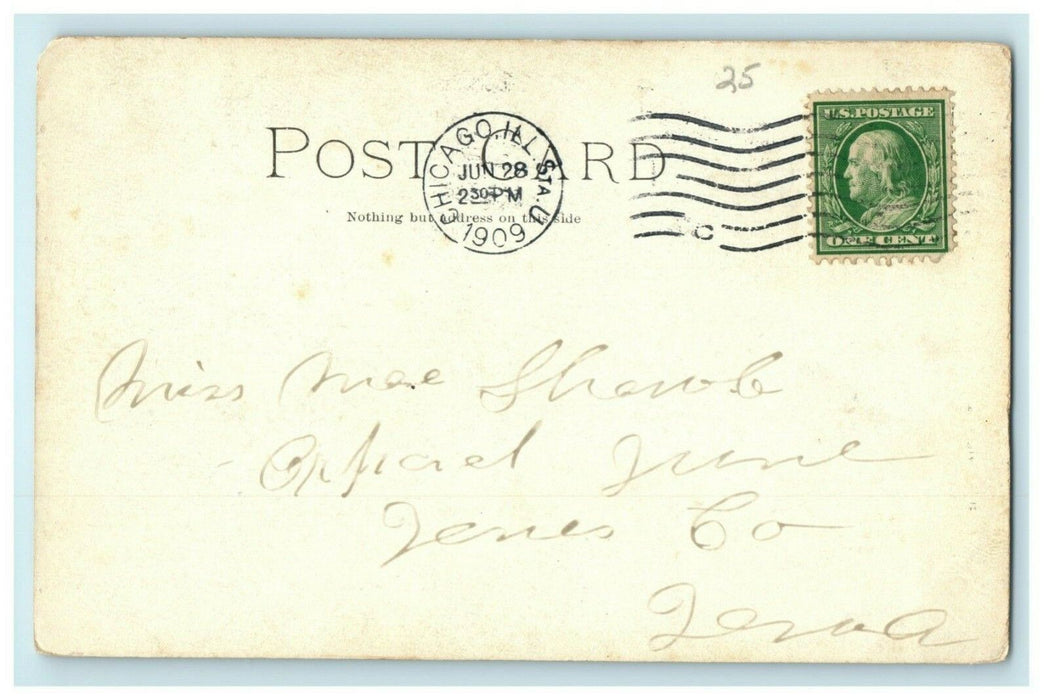 25
U.S. POSTAGE
POST CARD
CHICAGO, ILL. STA. U
JUN 28
2 30 PM
1909
C
Nothing but address on this side
ONE CENT
Miss Mae
Oxford June
Jones Co
Iowa